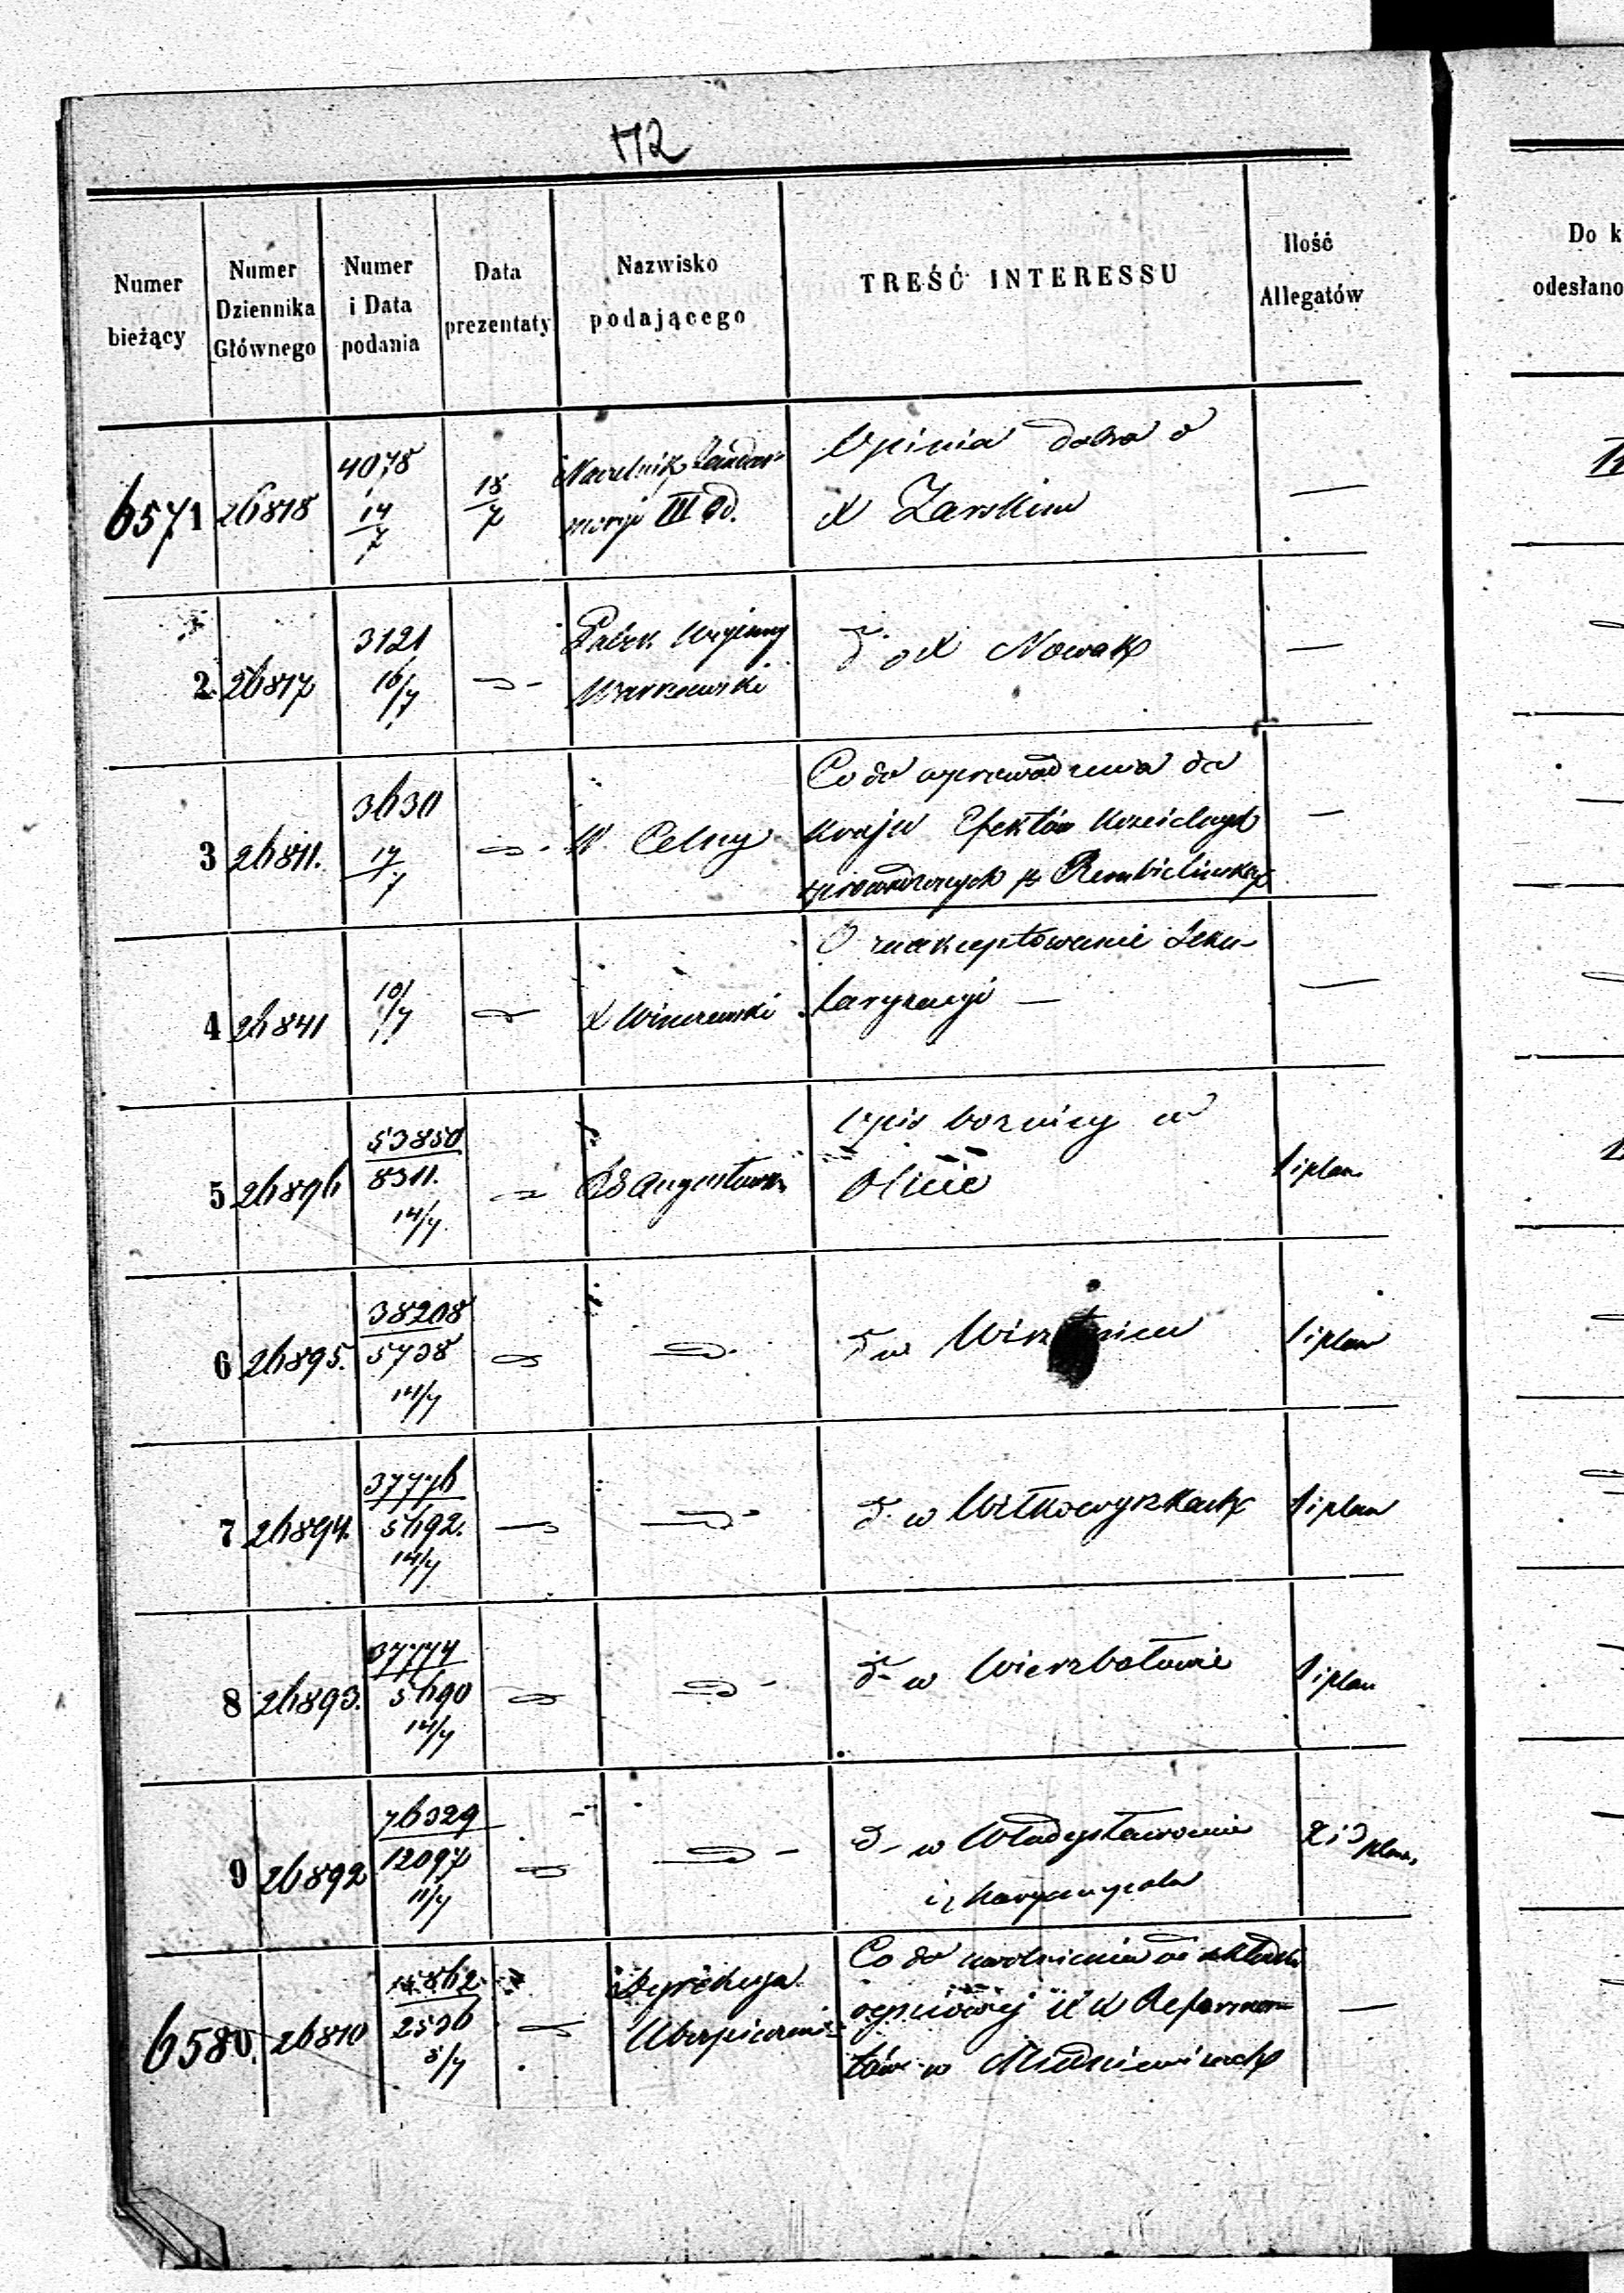 172
Numer
bieżący
Numer
Dziennika
Głównego
Numer
i Data
podania
Data
prezentaty
Nazwisko
podającego
TREŚĆ INTERESSU
Ilość
Allegatów
Do k
odesłano
6571 26818 4078 17/7 18/7 Naczelnik Żandar-
meryi III Od. Opinia dobra o
X Żarskim —
2 26817 3121 16/7 Wojenny
Warszawski o X Nowak —
3 26811. 3630 17/7 W. Celny Co do wprowadzenia do
kraju Efektów kościelnych
sprowadzonych p. Rembielińskiego —
4 26841 10/7 X Winczewski O zaakceptowanie Seku-
laryzacyi — —
5 26896 53850
8311. 14/7 RG Augustowski Opis bożnicy w
Olicie 1 i plan
6 26895. 38208
5738 14/7 w 1 i plan
7 26894. 37776
5692. 14/7 d. w Wiłkowyszkach 1 i plan
8 26893. 37774
5690 14/7 d. w Wierzbołowie 1 i plan
9 26892 76329
12097 11/7 d. w Władysławowie
2 i 3 plany
6580. 26810 2536 5/7 Dyrekcya
Ubezpieczeń Co do uwolnienia od składki
ogniowej XX Reforma-
tów w Miedniewicach —